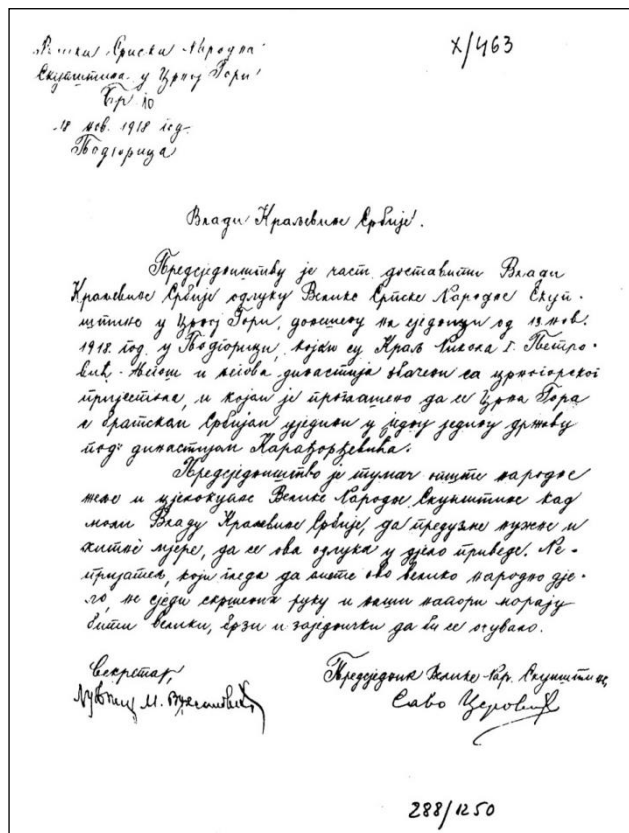 Велика Српска Народна
Скупштина у Црној Гори
Бр 10
18 нов. 1918 год.
Подгорица
X/463
Влади Краљевине Србије.
Предсједништву је част доставити Влади
Краљевине Србије одлуку Велике Српске Народне Скуп-
штине у Црној Гори, донешену на сједници од 13 нов.
1918. год. у Подгорици, којом су Краљ Никола I. Петро-
вић-Његош и његова династија свачени са црногорског
пријестола, и којом је проглашено да се Црна Гора
с братском Србијом уједини у једну једину државу
под династијом Карађорђевића.
Предсједништво је тумач опште народне
жеље и цјелокупне Велике Народне Скупштине кад
моли Владу Краљевине Србије, да предузме нужне и
хитне мјере, да се ова одлука у дјело приведе. Не-
пријатељ, који гледа да омете ово велико народно дје-
ло, не сједи скрштених руку и наши напори морају
бити велики, брзи и заједнички да би се очувало.
Секретар,
М. Вујисановић
Предсједник Велике Нар. Скупштине,
Саво Церовић
288/1250